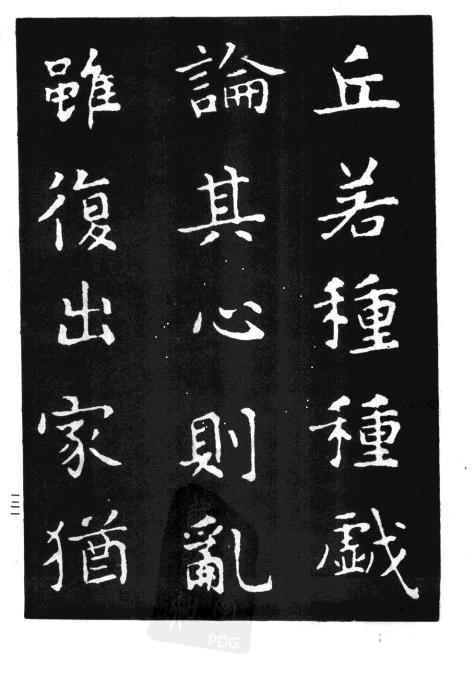 丘若種種戯
論其心則亂
雖復出家猶
三一
PDG